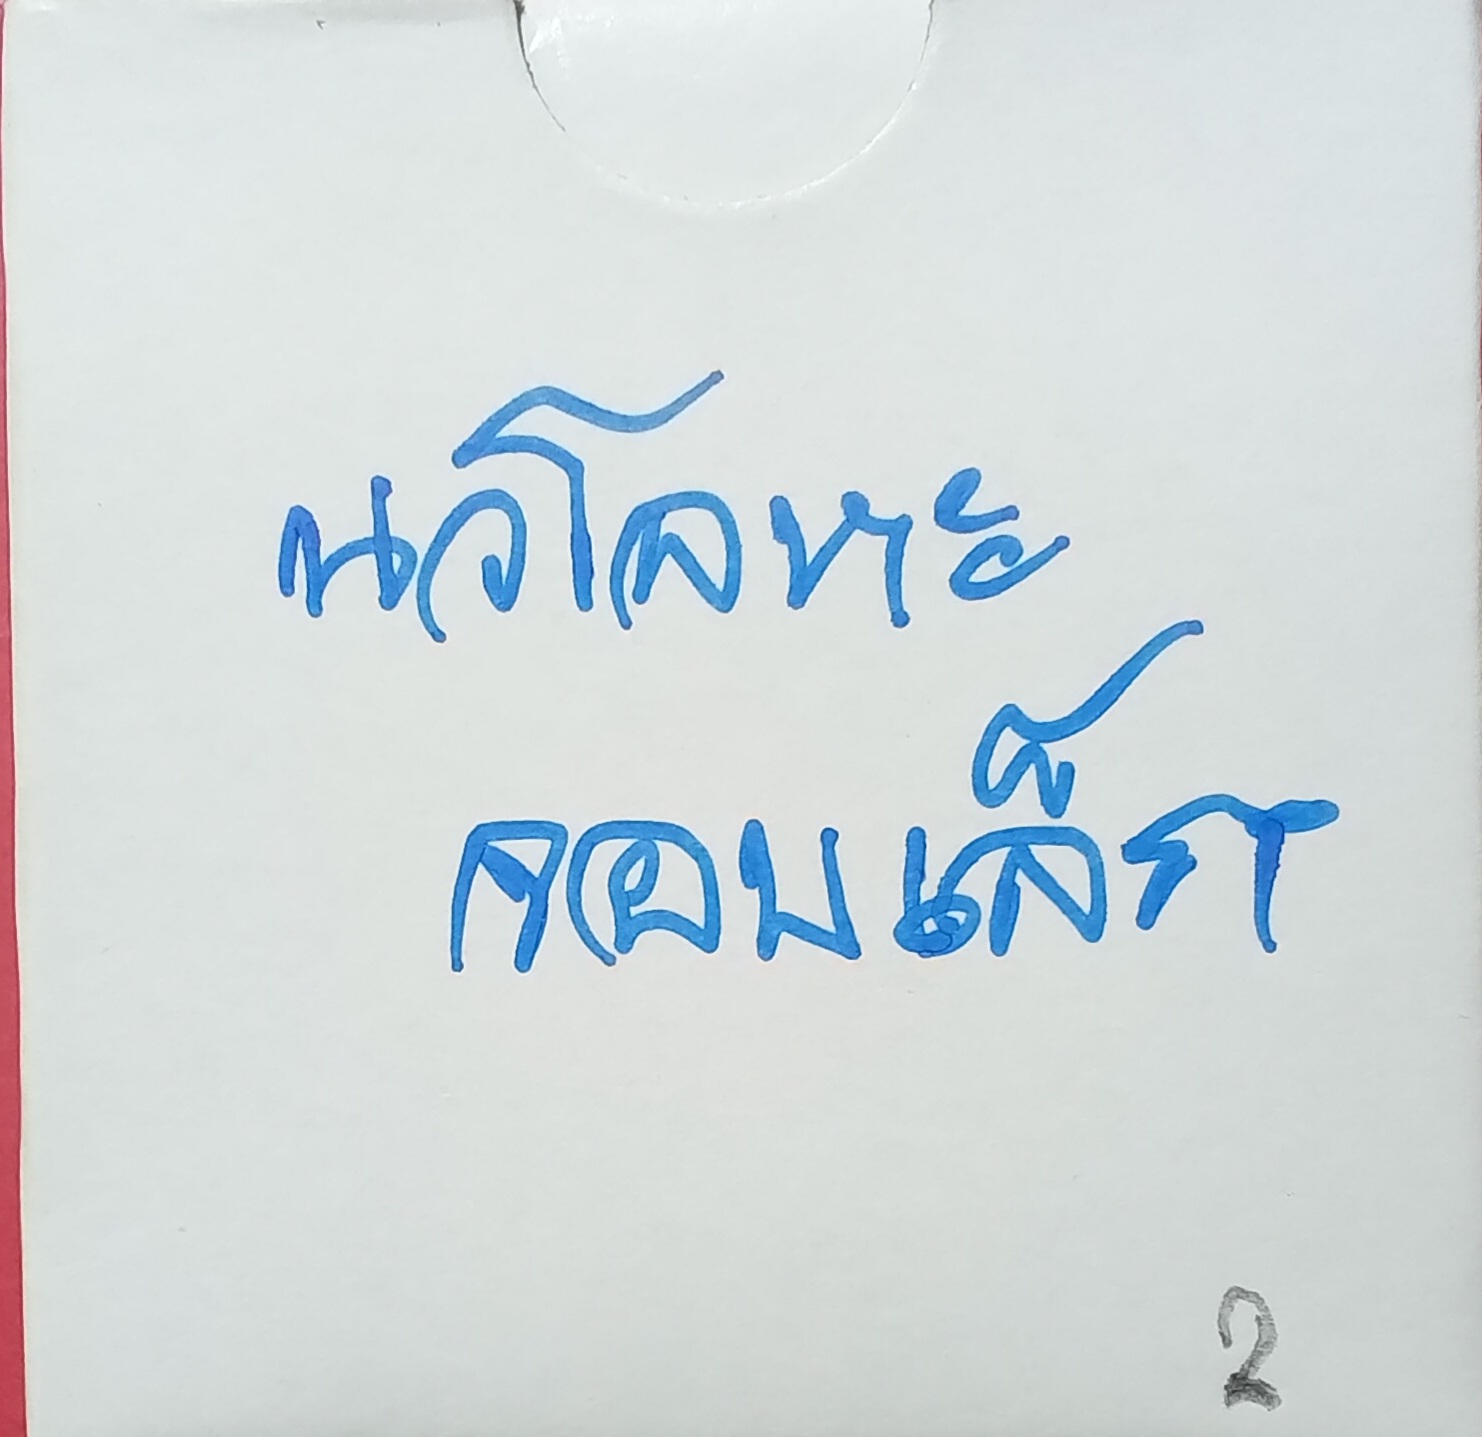 นวโลหะ
กอบเล็ก
2